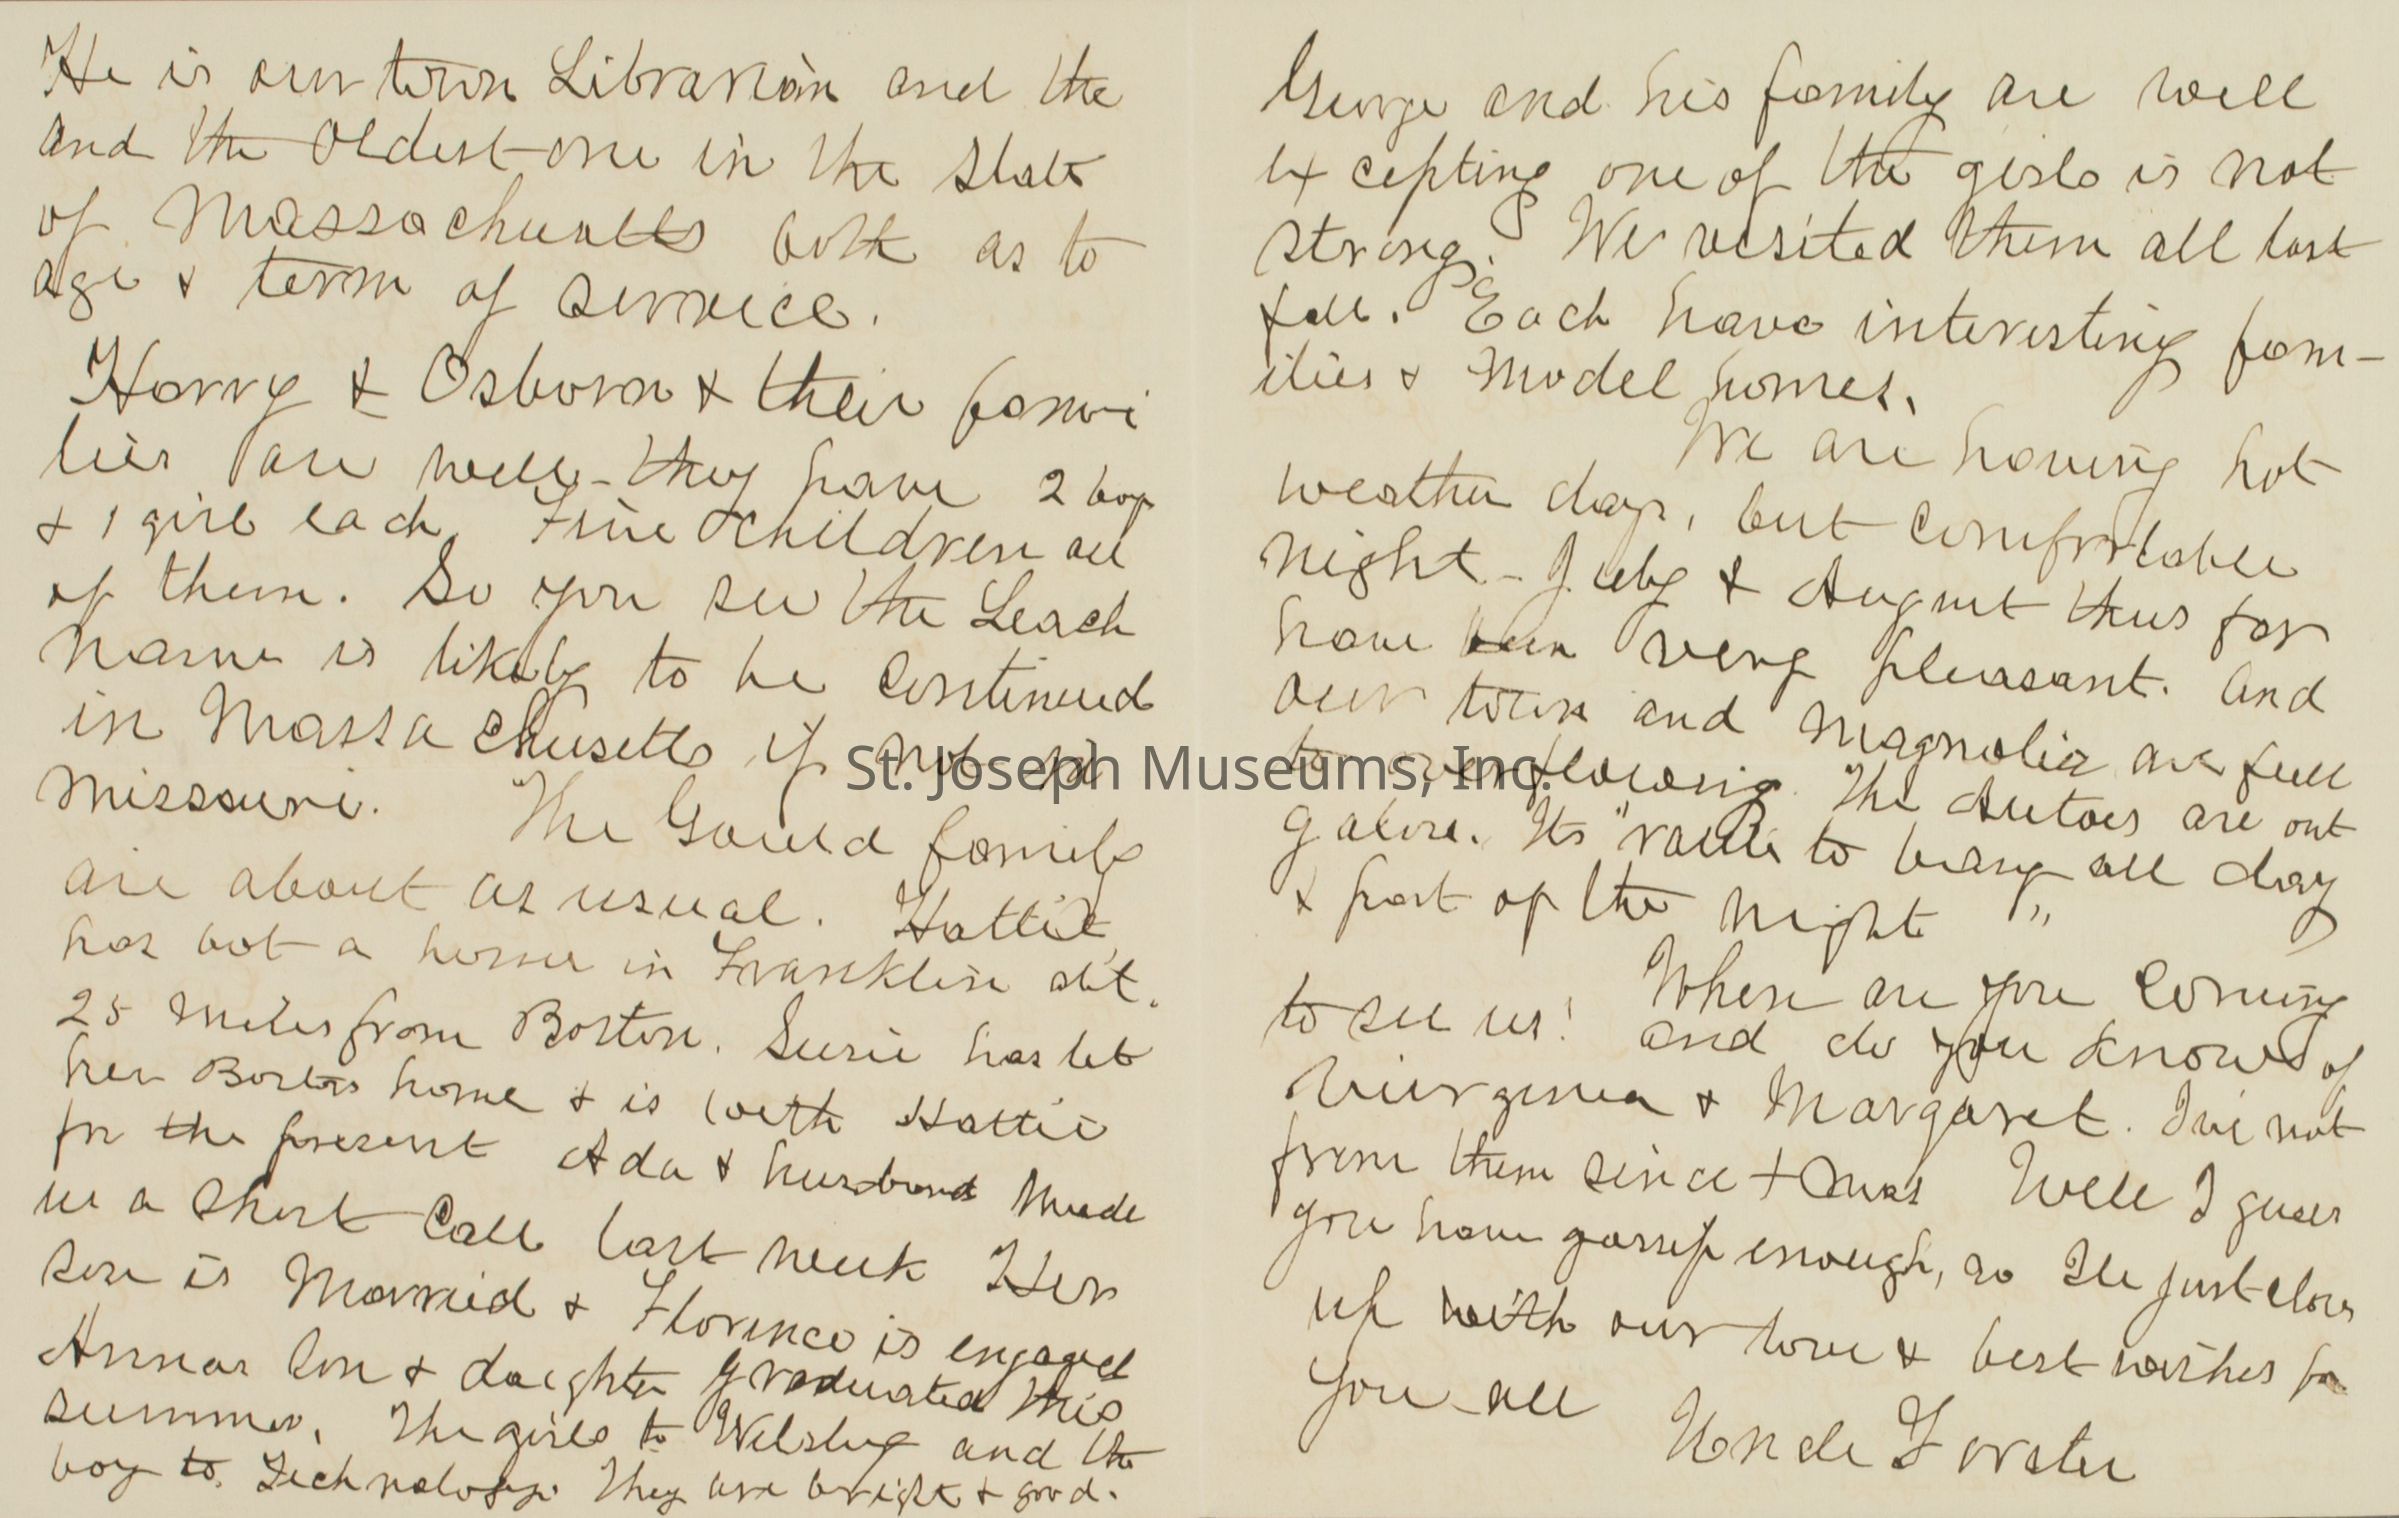 He is our town Librarian and the
and the oldest one in the State
of Massachusetts both as to
age & term of service.
Harry & Osborn & their fami
lies are well - they have 2 boys
& 1 girl each Fine children all
of them. So you see the Leach
name is likely to be continued
in Massachusetts if not in
Missouri. The Gould family
are about as usual. Hattie
has bot a home in Franklin abt.
25 miles from Boston. Susie has let
her Boston home & is with Hattie
for the present Ada & husband made
us a short call last week Her
son is Married & Florence is engaged
Annas son & daughter graduated this
summer. The girls to and the
boy to Technology. They are bright & good.
George and his family are well
excepting one of the girls is not
strong. We visited them all last
fall. Each have interesting fam-
ilies & Model homes.
We are having hot
weather days, but comfortable
night - July & August thus far
have been very pleasant. And
our town and Magnolia are full
to overflowing. The Autoes are out
galore. Its " to bang all day
& part of the night "
When are you coming
to see us! and do you know of
Viurginia & Margaret. I've not
from them since Xmas Well I guess
you have gossip enough, so Ile just close
up with our love & best wishes for
you all
Uncle Forster
St. Joseph Museums, Inc.